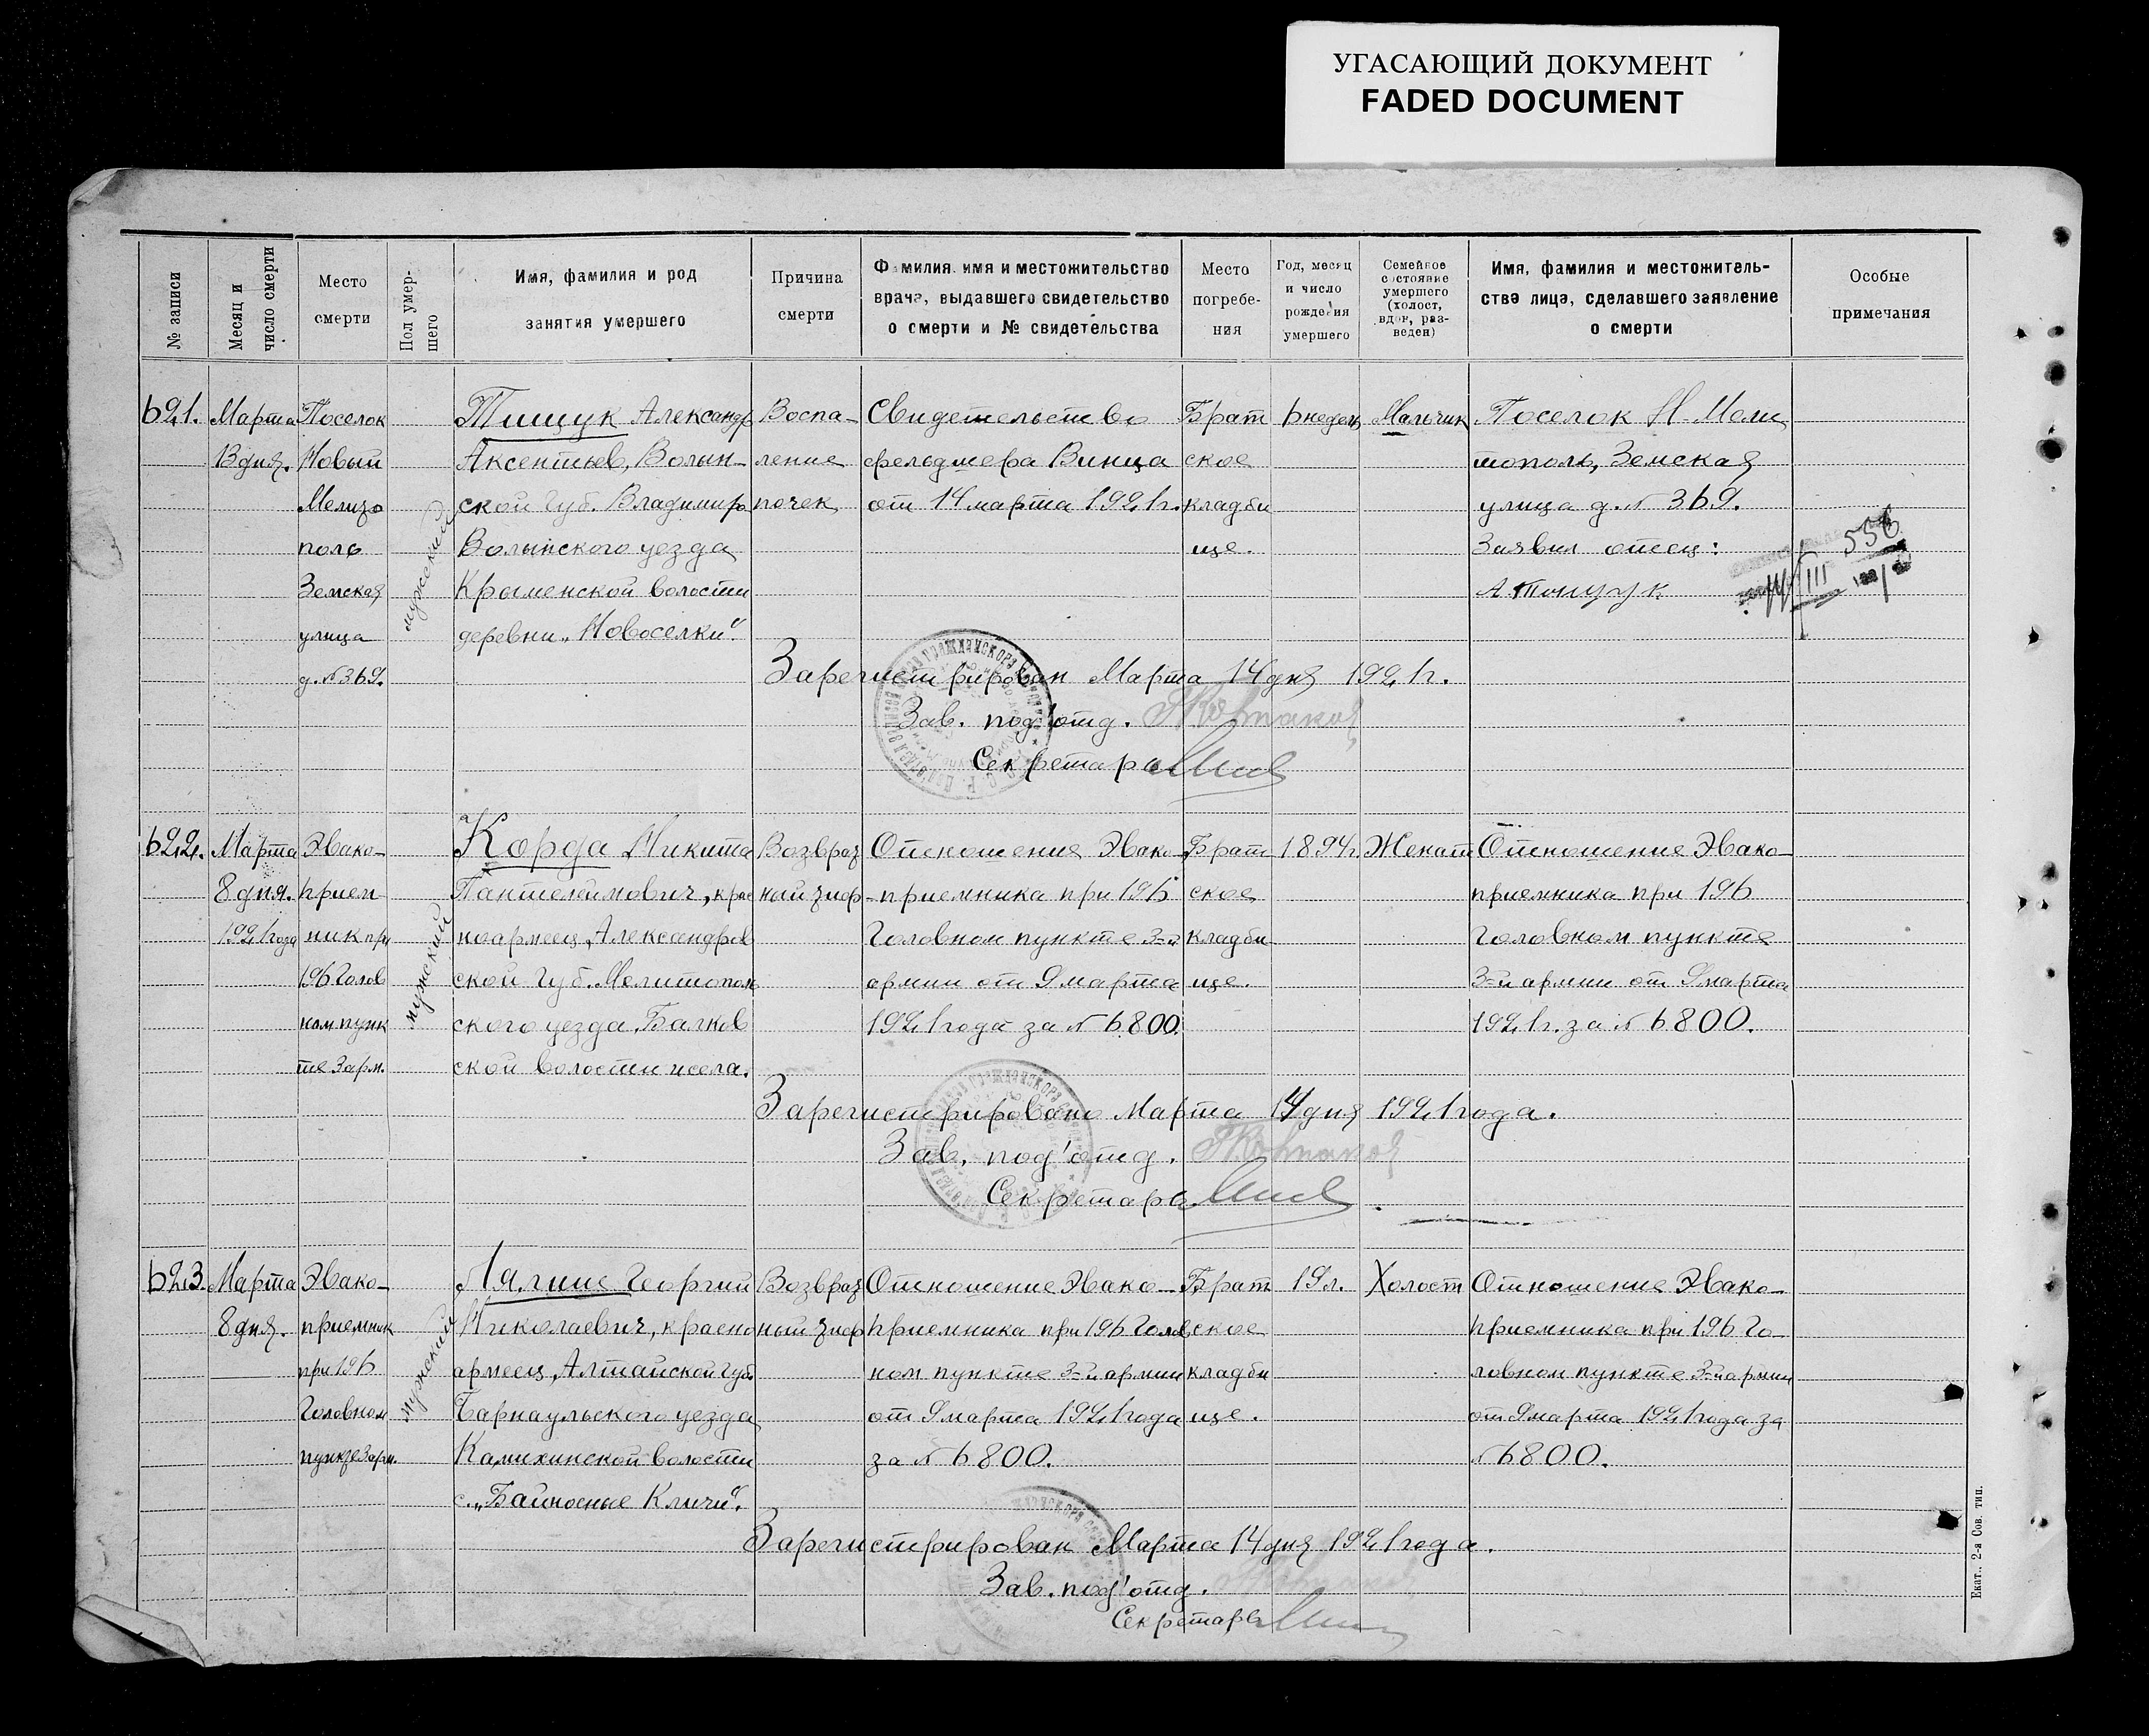 УГАСАЮЩИЙ ДОКУМЕНТ
FADED DOCUMENT
№ записи
Месяц и
число смерти
Место
смерти
Пол умер-
шего
Имя, фамилия и род
занятия умершего
Причина
смерти
Фамилия, имя и местожительство
врача, выдавшего свидетельство
о смерти и № свидетельства
Место
погребе-
ния
Год, месяц
и число
рождения
умершего
Семейное
состояние
умершего
(холост,
вдов, раз-
веден)
Имя, фамилия и местожитель-
ство лица, сделавшего заявление
о смерти
Особые
примечания
621.
Марта
13 дня.
Поселок
Новый
Мелито
поль
Земская
улица
д. № 369.
мужский
Тищук Александр
Аксентьев, Волын-
ской губ. Владимиро
Волынского уезда
Крыменской волости
деревни „Новоселки“.
Воспа-
ление
почек
Свидетельство
фельдшера Винца
от 14 марта 1921 г.
Брат
ское
кладби
ще.
6 недель
Мальчик
Поселок Н-Мели
тополь, Земская
улица д. № 369.
Заявил отец:
А Тищук
556
III
Зарегистрирован Марта 14 дня 1921 г.
Зав. под'отд.
Секретарь
622.
Марта
8 дня.
1921 года
Эвако-
прием
ник при
196 Голов
ном пунк
те 3 арм.
мужский
Корда Никита
Пантелеимович, крас
ноармеец, Александров
ской губ. Мелитополь
ского уезда, Балков
ской волости и села.
Возврат
ный тиф
Отношение Эвако-
приемника при 196
Головном пункте 3-й
армии от 9 марта
1921 года за № 6800.
Брат
ское
кладби
ще.
1894 г.
Женат
Отношение Эвако-
приемника при 196
Головном пункте
3-й армии от 9 марта
1921 г. за № 6800.
Зарегистрировано Марта 14 дня 1921 года.
Зав. под'отд.
Секретарь
623.
Марта
8 дня.
Эвако-
приемник
при 196
Головном
пункте 3 арм.
мужский
Лягин Георгий
Николаевич, красно
армеец, Алтайской губ.
Барнаульского уезда
волости
Возврат
ный тиф
Отношение Эвако-
приемника при 196 Голов
ном пункте 3-й армии
от 9 марта 1921 года
за № 6800.
Брат
ское
кладби
ще.
19 л.
Холост
Отношение Эвако-
приемника при 196 Го-
ловном пункте 3-й армии
от 9 марта 1921 года за
№ 6800.
Зарегистрирован Марта 14 дня 1921 года.
Зав. под'отд.
Секретарь
Екат. 2-я Сов. тип.